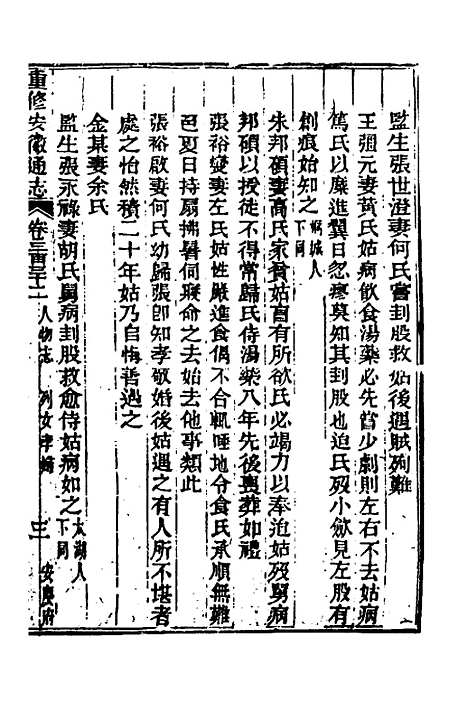 監生張世澄妻何氏嘗刲股救姑後遇賊殉難
王趙元妻黃氏姑病飲食湯藥必先嘗少劇則左右不去姑病
篤氏以糜進翼日忽瘳莫知其刲股也迨氏歿小歛見左股有
創痕始知之 桐城人下同
朱邦碩妻高氏家貧姑盲有所欲氏必竭力以奉迨姑歿舅病
邦碩以授徒不得常歸氏侍湯藥八年先後喪葬如禮
張裕燮妻左氏姑性嚴進食偶不合輒唾地令食氏承順無難
色夏日持扇拂暑伺寢命之去始去他事類此
張裕啟妻何氏幼歸張卽知孝敬婚後姑遇之有人所不堪者
處之怡然積二十年姑乃自悔善遇之
金某妻余氏
監生張永祿妻胡氏舅病刲股救愈侍姑病如之 太湖人下同
重修安徽通志 卷三百三十二 人物志 列女孝婦 三 安慶府